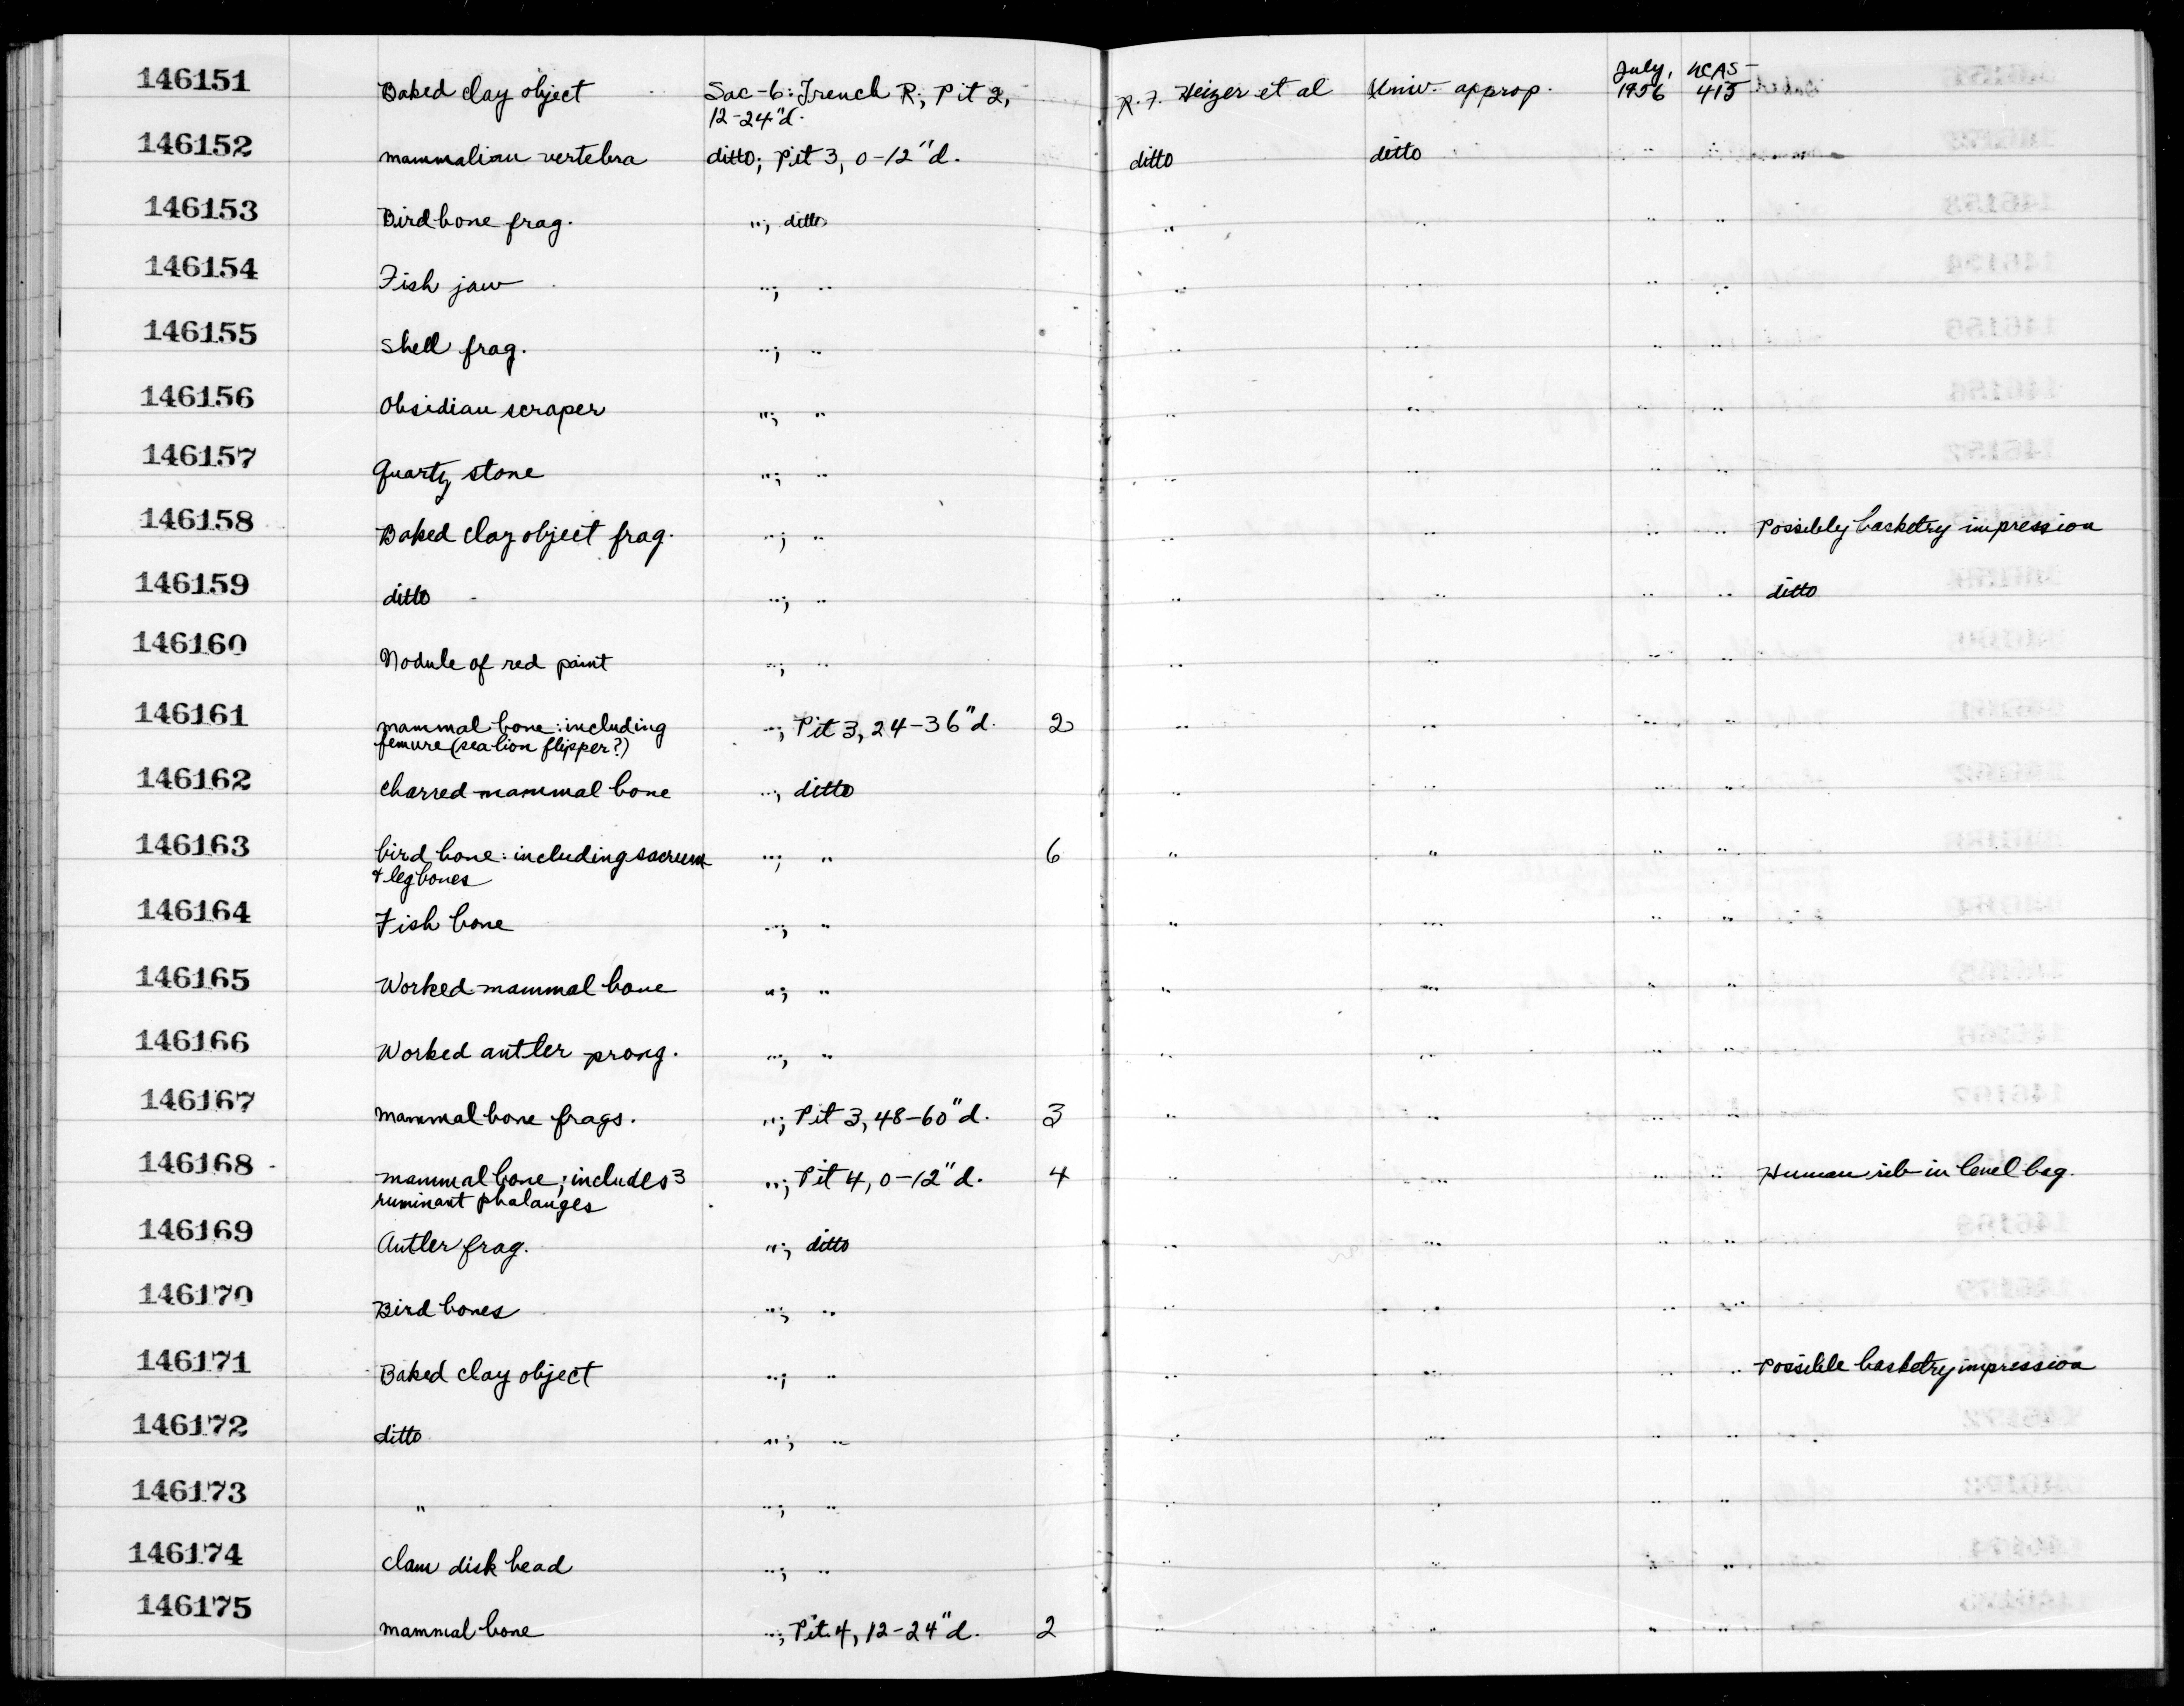 146151 Baked clay object Sac-6: Trench R; Pit 2, 12-24"d. R. F. Heizer et al Univ. approp. July, 1956 UCAS-415
146152 mammalian vertebra ditto; Pit 3, 0-12"d. ditto ditto " "
146153 Bird bone frag. "; ditto " " " "
146154 Fish jaw "; " " " " "
146155 Shell frag. "; " " " " "
146156 Obsidian scraper "; " " " " "
146157 Quartz stone "; " " " " "
146158 Baked clay object frag. "; " " " " " Possibly basketry impression
146159 ditto "; " " " " " ditto
146160 Nodule of red paint "; " " " " "
146161 mammal bone: including femure (sea lion flipper?) "; Pit 3, 24-36"d. 2 " " " "
146162 charred mammal bone "; ditto " " " "
146163 bird bone: including sacrum & leg bones "; " 6 " " " "
146164 Fish bone "; " " " " "
146165 Worked mammal bone "; " " " " "
146166 Worked antler prong. "; " " " " "
146167 mammal bone frags. "; Pit 3, 48-60"d. 3 " " " "
146168 mammal bone; includes 3 ruminant phalanges "; Pit 4, 0-12"d. 4 " " " " Human rib in level bag.
146169 Antler frag. "; ditto " " " "
146170 Bird bones "; " " " " "
146171 Baked clay object "; " " " " " Possible basketry impression
146172 ditto "; " " " " "
146173 " "; " " " " "
146174 clam disk bead "; " " " " "
146175 mammal bone "; Pit 4, 12-24"d. 2 " " " "